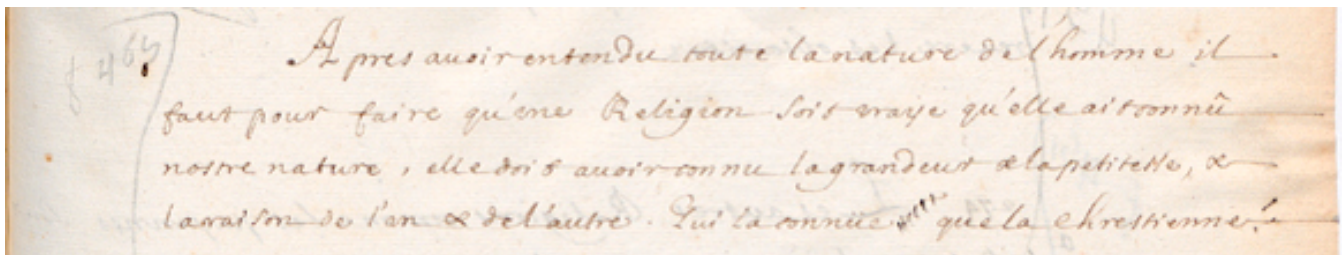 Apres auoir entendu toute la nature de l'homme il
faut pour faire qu'une Religion soit vraye qu'elle ait connû
nostre nature, elle doit auoir connu la grandeur & la petitesse, &
la raison de l'un & de l'autre. Qui l'a connüe que la chrestienne?